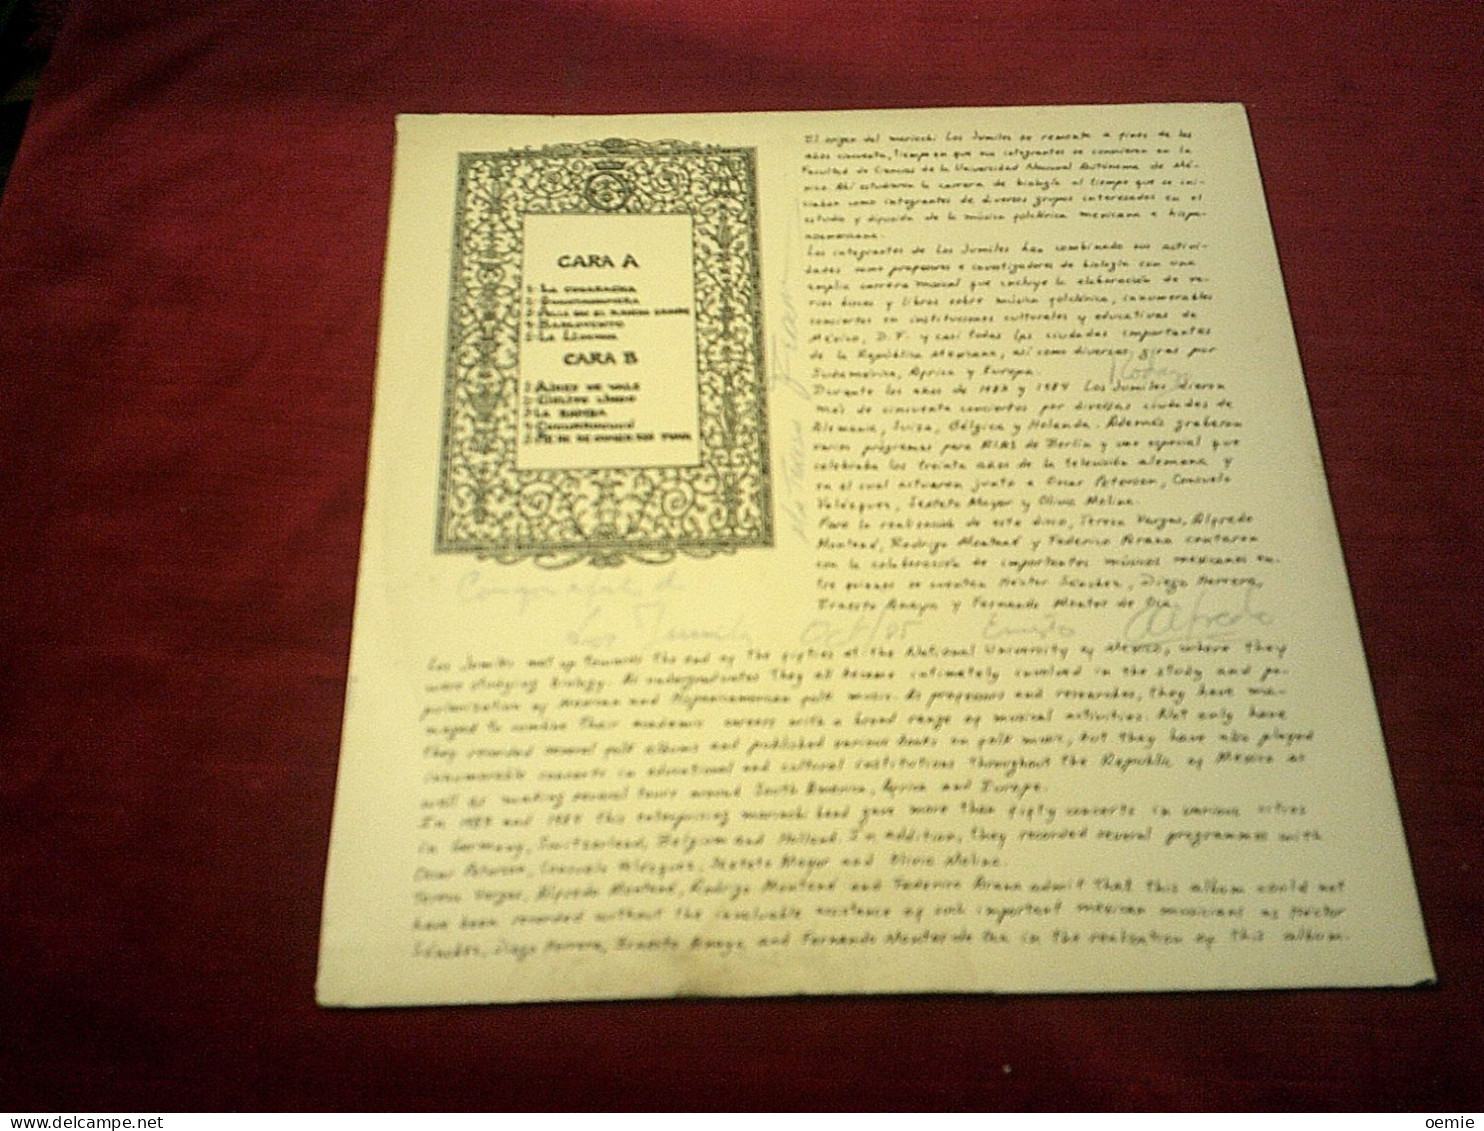 CARA A
1- LA CUCARACHA
2- GUANTANAMERA
3- ALLA EN EL RANCHO GRANDE
4- BARLOVENTO
5- LA LLORONA
CARA B
2- CIELITO LINDO
3- LA BAMBA
El origen del mariachi Los Jumiles se remonta a fines de los
años cincuenta, tiempo en que sus integrantes se conocieron en la
Facultad de Ciencias de la Universidad Nacional Autónoma de Mé-
xico. Ahí estudiaron la carrera de biología al tiempo que se ini-
ciaban como integrantes de diversos grupos interesados en el
estudio y difusión de la música folclórica mexicana e hispa-
noamericana.
Los integrantes de Los Jumiles han combinado sus activi-
dades como profesores e investigadores de biología con una
amplia carrera musical que incluye la elaboración de va-
rios discos y libros sobre música folclórica, innumerables
conciertos en instituciones culturales y educativas de
México, D.F. y casi todas las ciudades importantes
de la República Mexicana, así como diversas giras por
Sudamérica, Africa y Europa.
Durante los años de 1983 y 1984 Los Jumiles dieron
más de cincuenta conciertos por diversas ciudades de
Alemania, Suiza, Bélgica y Holanda. Además grabaron
varios programas para RIAS de Berlín y uno especial que
celebraba los treinta años de la televisión alemana y
en el cual actuaron junto a Oscar Peterson, Consuelo
Velázquez, Sexteto Mayor y Olivia Molina.
Para la realización de este disco, Teresa Vargas, Alfredo
Montead, Rodrigo Montead y Federico Arana contaron
con la colaboración de importantes músicos mexicanos en-
tre quienes se cuentan Héctor Sánchez, Diego Herrera,
Ernesto Anaya y Fernando Montes de Oca.
Los Jumiles Oct/85 Ernesto Alfredo
Los Jumiles met up towards the end of the fifties at the National University of Mexico, where they
were studying biology. As undergraduates they all became intimately involved in the study and po-
pularization of Mexican and Hispanoamerican folk music. As professors and researches, they have ma-
naged to combine their academic careers with a broad range of musical activities. Not only have
they recorded several folk albums and published various books on folk music, but they have also played
innumerable concerts in educational and cultural institutions throughout the Republic of Mexico as
well as making several tours around South America, Africa and Europe.
In 1983 and 1984 this enterprising mariachi band gave more than fifty concerts in various cities
in Germany, Switzerland, Belgium and Holland. In addition, they recorded several programmes with
Oscar Peterson, Consuelo Velázquez, Sexteto Mayor and Olivia Molina.
Teresa Vargas, Alfredo Montead, Rodrigo Montead and Federico Arana admit that this album could not
have been recorded without the invaluable assistance of such important mexican musicians as Héctor
Sánchez, Diego Herrera, Ernesto Anaya, and Fernando Montes de Oca in the realization of this album.
delcampe.net
oemie